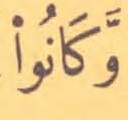 وَّكَانُوا۟